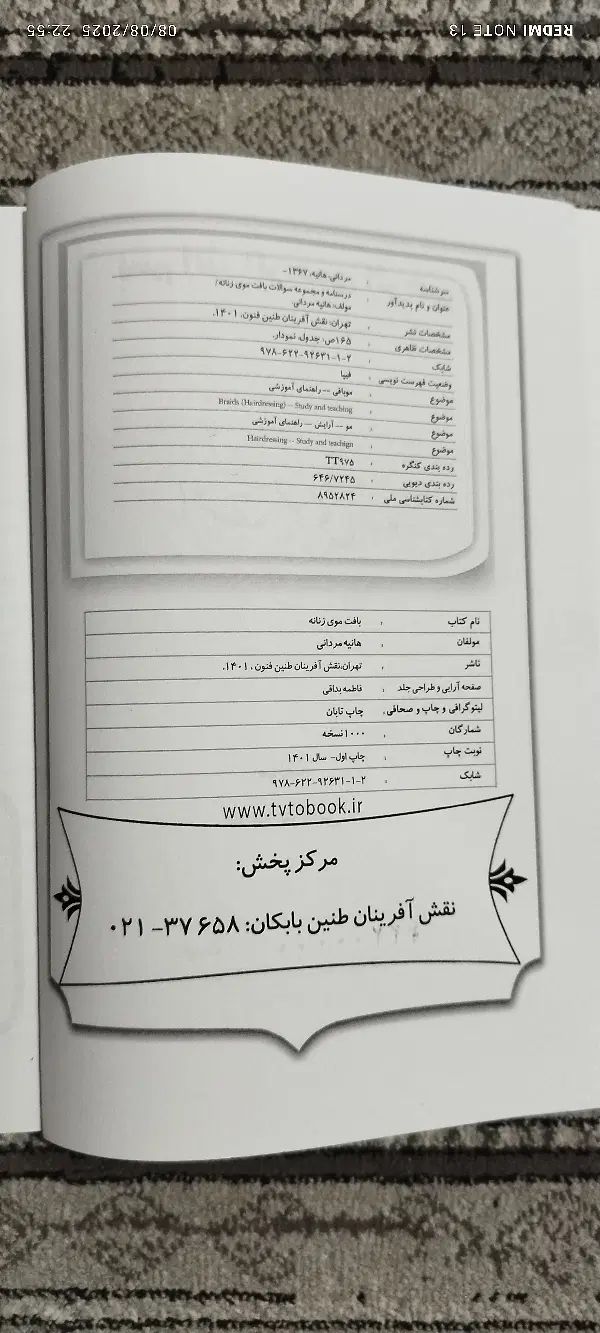 REDMI NOTE 13
08/08/2025 22:55
سرشناسه : مردانی، هانیه، ۱۳۶۷-
عنوان و نام پدیدآور : درسنامه و مجموعه سوالات بافت موی زنانه/
مولف: هانیه مردانی.
مشخصات نشر : تهران: نقش آفرینان طنین فنون، ۱۴۰۱.
مشخصات ظاهری : ۱۶۵ص: جدول، نمودار.
شابک : ۹۷۸-۶۲۲-۹۲۶۳۱-۱-۲
وضعیت فهرست نویسی : فیپا
موضوع : موبافی -- راهنمای آموزشی
موضوع : Braids (Hairdressing) -- Study and teaching
موضوع : مو -- آرایش -- راهنمای آموزشی
موضوع : Hairdressing -- Study and teachign
رده بندی کنگره : TT۹۷۵
رده بندی دیویی : ۶۴۶/۷۲۴۵
شماره کتابشناسی ملی : ۸۹۵۲۸۲۴
نام کتاب : بافت موی زنانه
مولفان : هانیه مردانی
ناشر : تهران،نقش آفرینان طنین فنون، ۱۴۰۱.
صفحه آرایی و طراحی جلد : فاطمه یداقی
لیتوگرافی و چاپ و صحافی: چاپ تابان
شمارگان : ۱۰۰۰ نسخه
نوبت چاپ : چاپ اول- سال ۱۴۰۱
شابک : ۹۷۸-۶۲۲-۹۲۶۳۱-۱-۲
www.tvtobook.ir
مرکز پخش:
نقش آفرینان طنین بابکان: ۳۷۶۵۸-۰۲۱